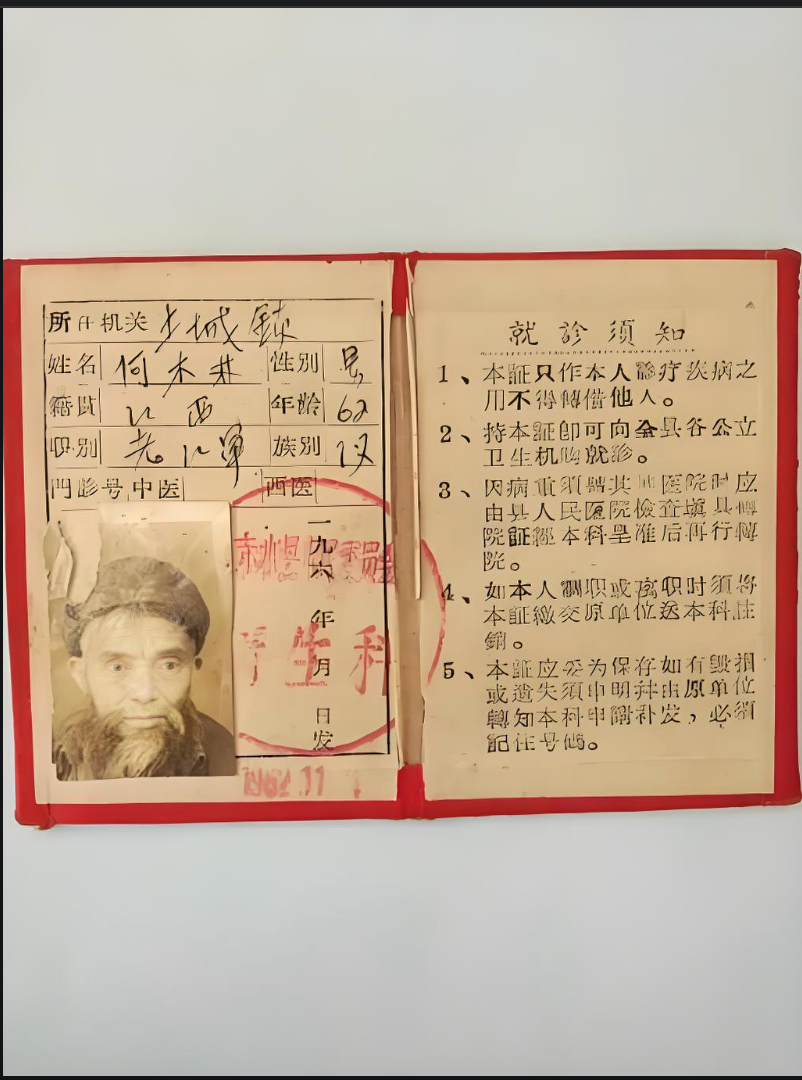 所在机关 土城鎮
姓名 何木林 性别 男
籍貫 江西 年龄 62
职别 老红軍 族别 汉
門診号 中医 西医
一九六 年 月 日发
生科
就診須知
1、本証只作本人診疗疾病之
用不得轉借他人。
2、持本証即可向全县各公立
卫生机构就診。
3、因病重須 其 医院时应
由县人民医院檢查填具轉
院証經本科呈准后再行轉
院。
4、如本人調职或离职时須将
本証繳交原单位送本科註
銷。
5、本証应妥为保存如有毀損
或遺失須申明并由原单位
轉知本科申請补发，必須
記住号碼。